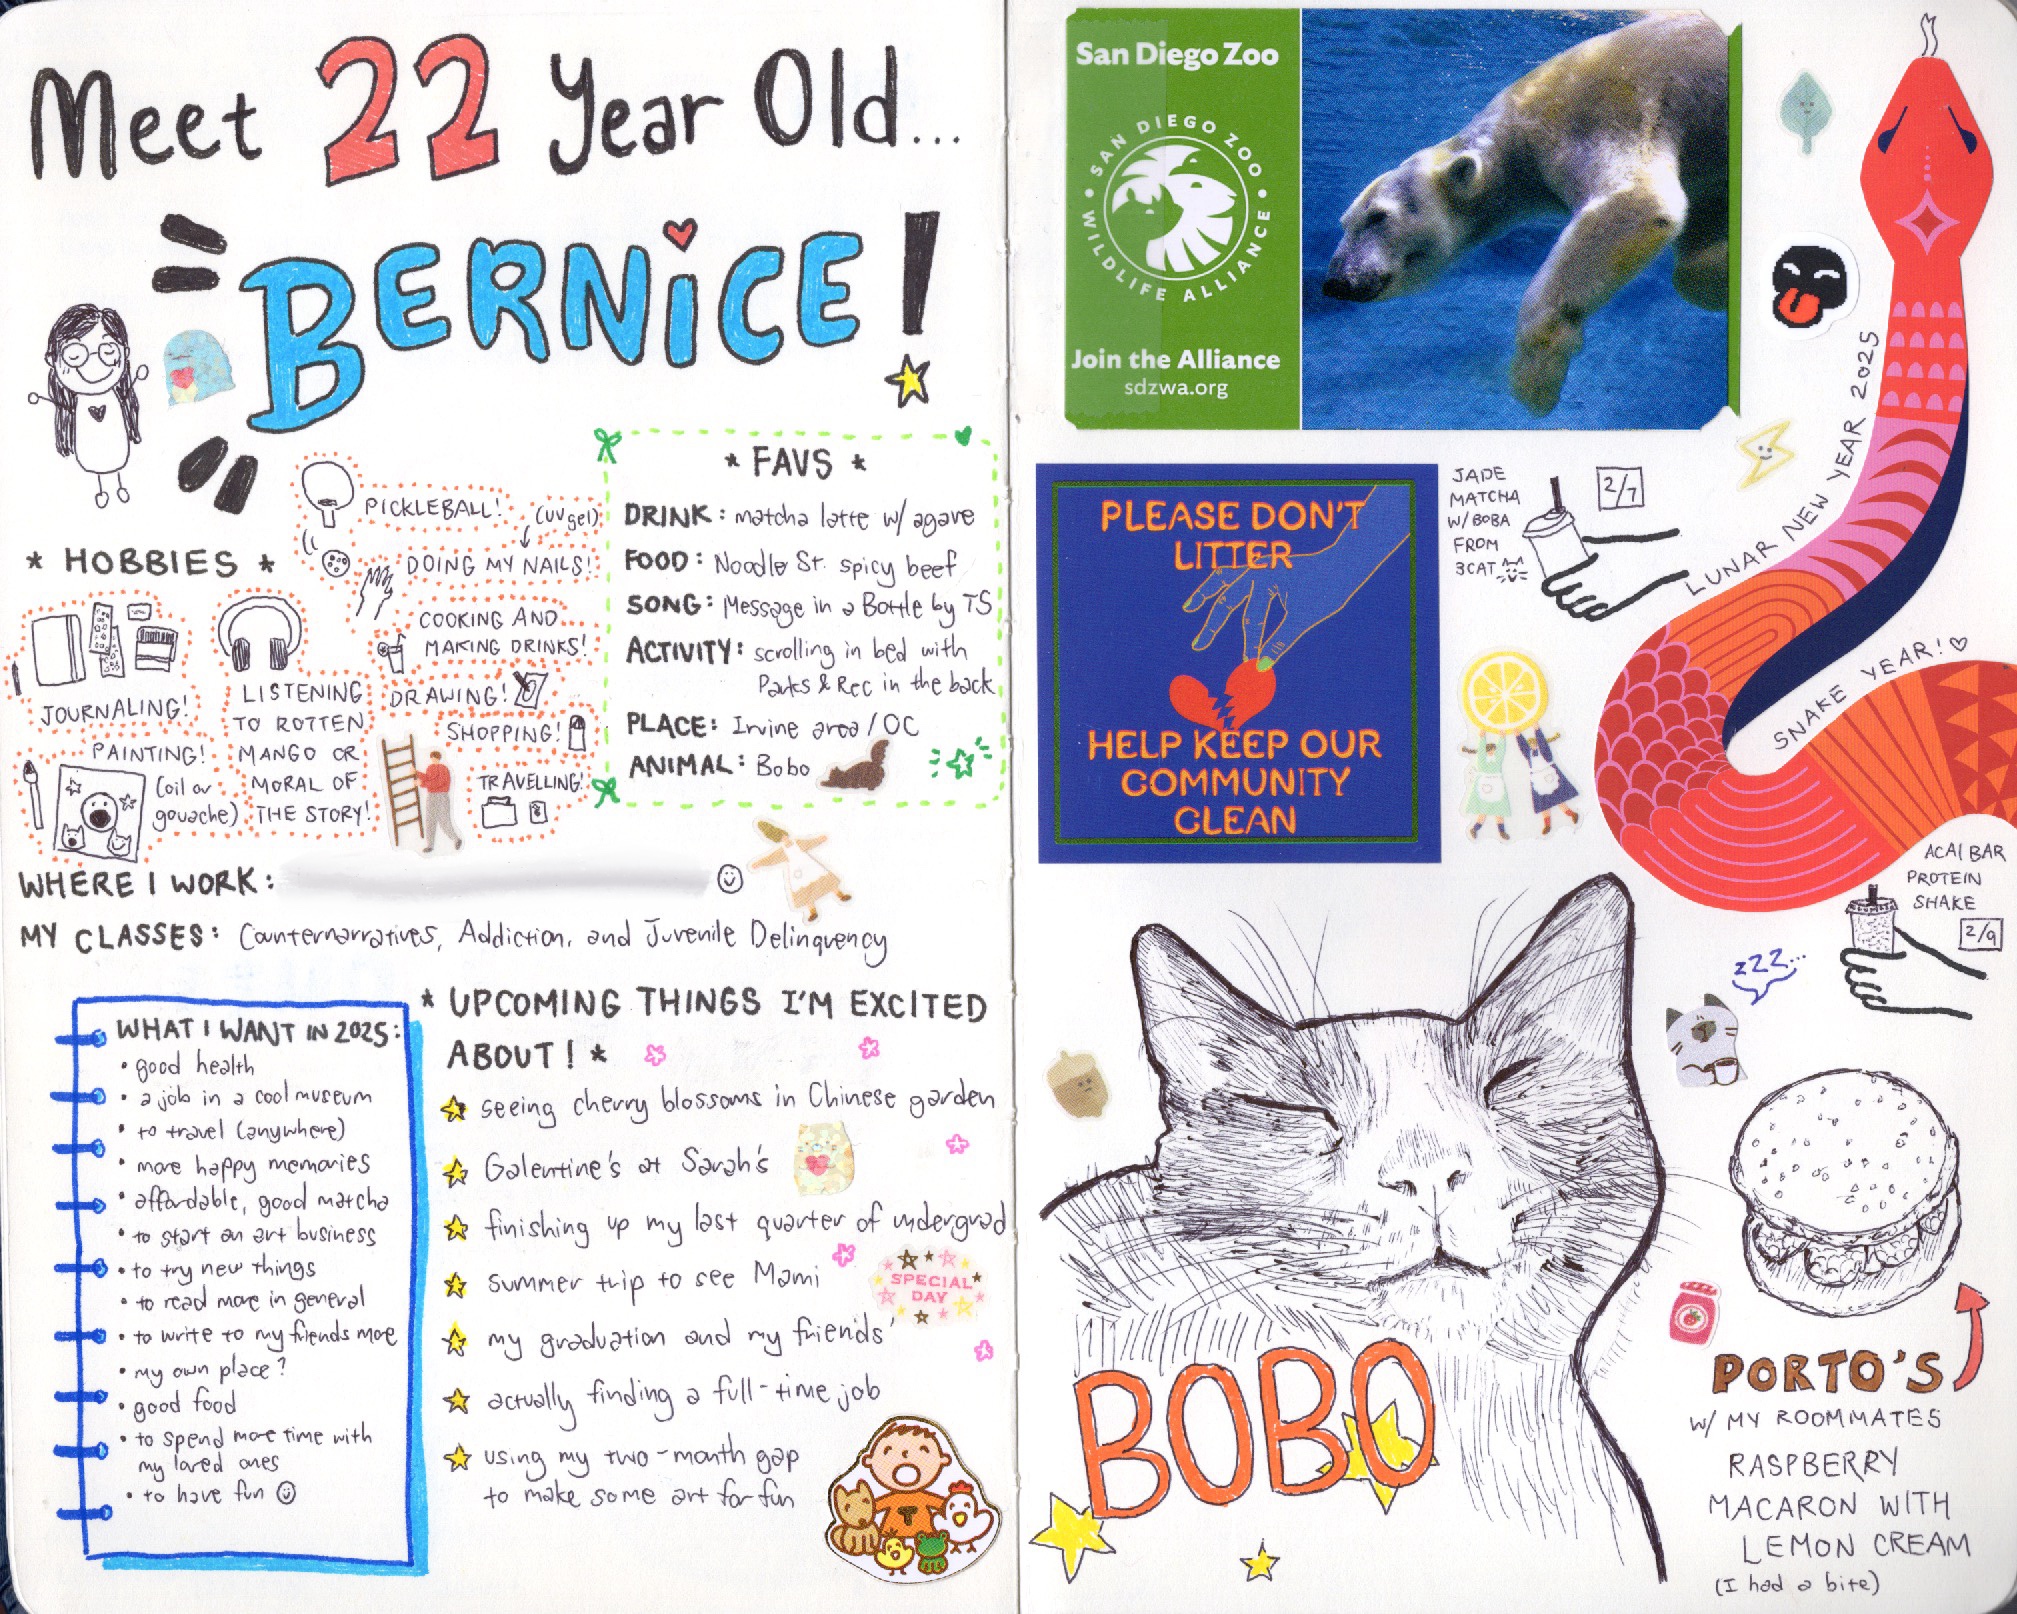 Meet 22 Year Old...
BERNiCE!
* HOBBIES *
PICKLEBALL!
(uv gel)
DOING MY NAILS!
COOKING AND
MAKING DRINKS!
JOURNALING!
LISTENING
TO ROTTEN
MANGO OR
MORAL OF
THE STORY!
DRAWING!
SHOPPING!
PAINTING!
(oil or
gouache)
TRAVELLING!
* FAVS *
DRINK: matcha latte w/ agave
FOOD: Noodle St. spicy beef
SONG: Message in a Bottle by TS
ACTIVITY: scrolling in bed with
Parks & Rec in the back
PLACE: Irvine area / OC
ANIMAL: Bobo
WHERE I WORK:
MY CLASSES: Counternarratives, Addiction, and Juvenile Delinquency
WHAT I WANT IN 2025:
• good health
• a job in a cool museum
• to travel (anywhere)
• more happy memories
• affordable, good matcha
• to start an art business
• to try new things
• to read more in general
• to write to my friends more
• my own place?
• good food
• to spend more time with
my loved ones
• to have fun
* UPCOMING THINGS I'M EXCITED
ABOUT! *
seeing cherry blossoms in Chinese garden
Galentine's at Sarah's
finishing up my last quarter of undergrad
summer trip to see Mami
SPECIAL
DAY
my graduation and my friends'
actually finding a full-time job
using my two-month gap
to make some art for fun
T
San Diego Zoo
SAN DIEGO ZOO
WILDLIFE ALLIANCE
Join the Alliance
sdzwa.org
PLEASE DON'T
LITTER
HELP KEEP OUR
COMMUNITY
CLEAN
JADE
MATCHA
W/ BOBA
FROM
3CAT
2/7
LUNAR NEW YEAR 2025
SNAKE YEAR!
ACAI BAR
PROTEIN
SHAKE
2/9
zzz...
BOBO
PORTO'S
W/ MY ROOMMATES
RASPBERRY
MACARON WITH
LEMON CREAM
(I had a bite)